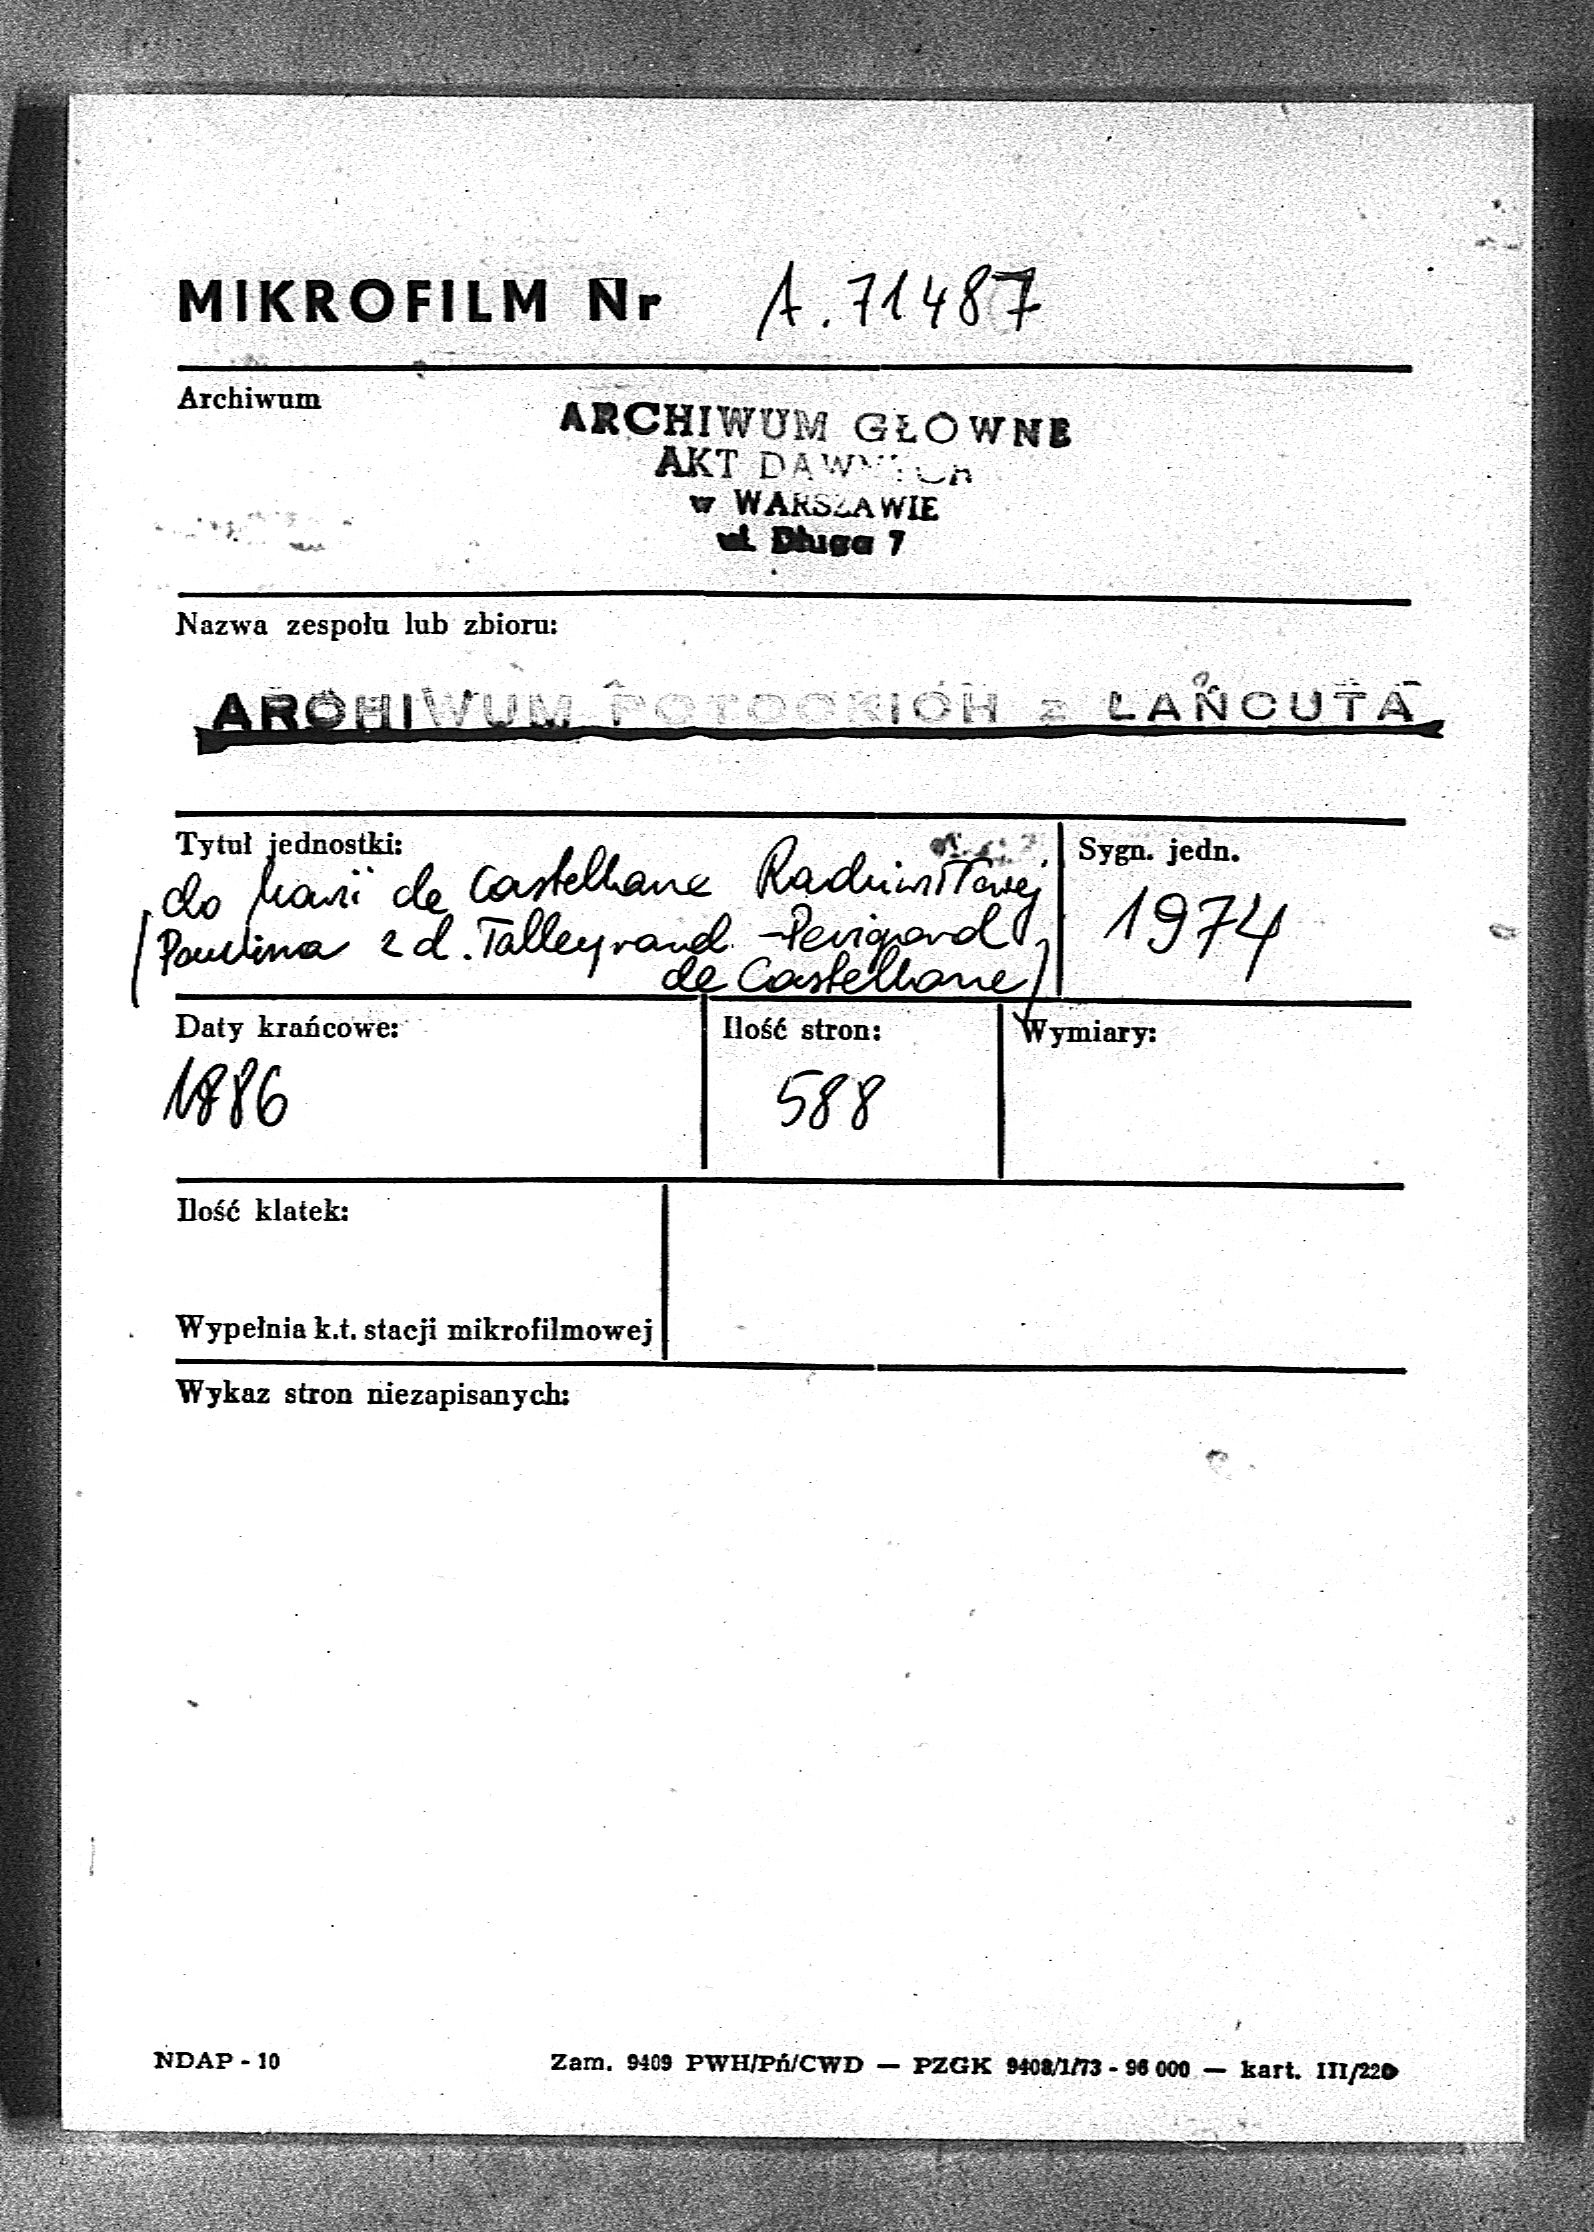 MIKROFILM Nr A.71487
Archiwum
ARCHIWUM GŁÓWNE
AKT DAWNYCH
w WARSZAWIE
ul. Długa 7
Nazwa zespołu lub zbioru:
ARCHIWUM POTOCKICH z ŁAŃCUTA
Tytuł jednostki:
do Marii de Castellane Radziwiłłowej
(Paulina z d. Talleyrand - Perigord
de Castellane)
Sygn. jedn.
1974
Daty krańcowe:
1886
Ilość stron:
588
Wymiary:
Ilość klatek:
Wypełnia k.t. stacji mikrofilmowej
Wykaz stron niezapisanych:
NDAP - 10
Zam. 9409 PWH/Pń/CWD — PZGK 9408/1/73 - 96 000 — kart. III/220